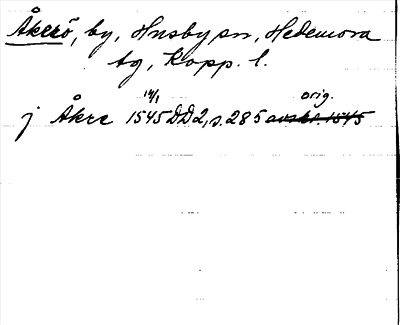 Åkerö, by, Husby sn, Hedemora
tg, Kopp. l.
j Åkre 14/1 1545 DD2, s. 285 orig. avskr. 1545